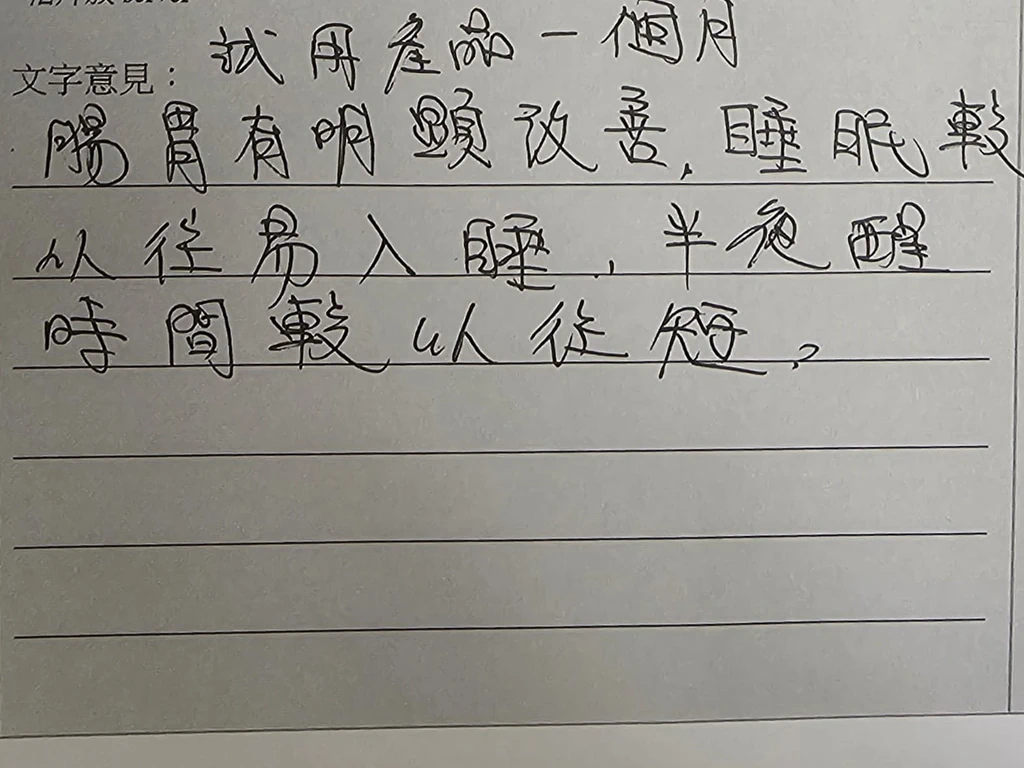 試用產品一個月
文字意見：
腸胃有明顯改善，睡眠較
以從易入睡，半夜醒
時間較以從短，